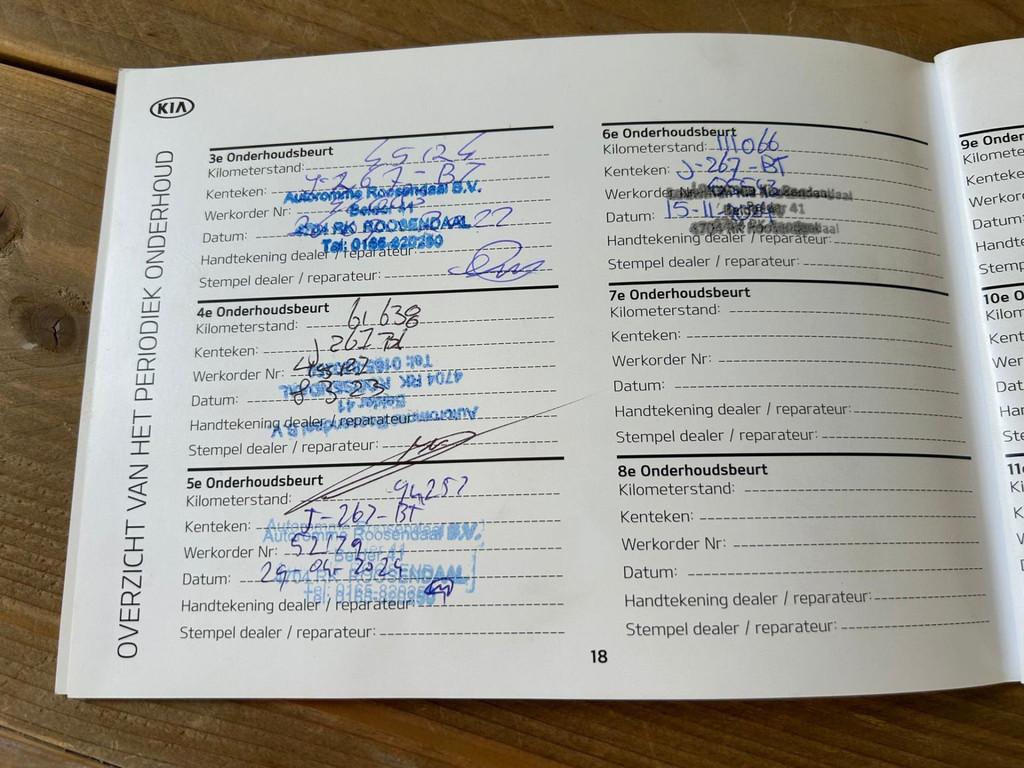 KIA
OVERZICHT VAN HET PERIODIEK ONDERHOUD
3e Onderhoudsbeurt
Kilometerstand: 45124
Kenteken: J-267-BT
Autoromme Roosendaal B.V.
Werkorder Nr:
Belder 41
Datum: 22
4704 RK ROOSENDAAL
Tel: 0165-820250
Handtekening dealer / reparateur:
Stempel dealer / reparateur:
4e Onderhoudsbeurt
Kilometerstand: 61 638
Kenteken: J 267
Werkorder Nr:
Tel: 0165
Datum: 8 3 23
4704 RK ROOSENDAAL
Belder 41
Handtekening dealer / reparateur:
Stempel dealer / reparateur:
5e Onderhoudsbeurt
Kilometerstand: 94257
Kenteken: J-267-BT
Autoromme Roosendaal B.V.
Werkorder Nr: 52129
Belder 41
Datum: 29-04-2024
4704 RK ROOSENDAAL
Tel: 0165-820250
Handtekening dealer / reparateur:
Stempel dealer / reparateur:
6e Onderhoudsbeurt
Kilometerstand: 111066
Kenteken: J-267-BT
Werkorder
Datum: 15-11
Belder 41
4704 RK Roosendaal
Handtekening dealer / reparateur:
Stempel dealer / reparateur:
7e Onderhoudsbeurt
Kilometerstand:
Kenteken:
Werkorder Nr:
Datum:
Handtekening dealer / reparateur:
Stempel dealer / reparateur:
8e Onderhoudsbeurt
Kilometerstand:
Kenteken:
Werkorder Nr:
Datum:
Handtekening dealer / reparateur:
Stempel dealer / reparateur:
18
9e Onder
Kilomete
Kenteke
Werkord
Datum:
Handte
Stemp
10e O
Kilom
Kent
Wer
Dat
Har
Ste
11e
Ki